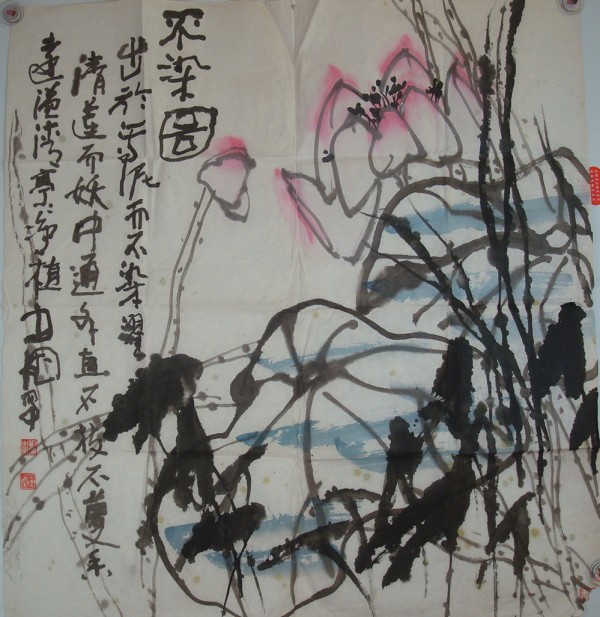 不染图
出於淤泥而不染濯
清莲而妖中通外直不枝不蔓香
远溢清亭净植